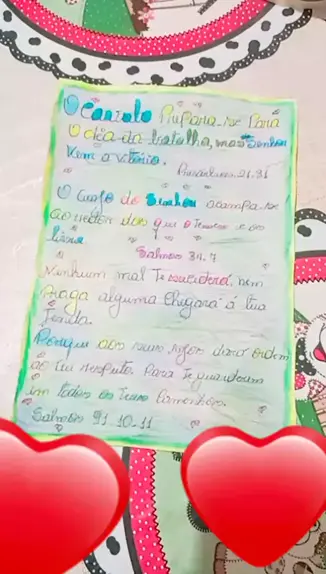 O Cavalo Prepara-se Para
O dia da batalha, mas do Senhor
Vem a vitória.
Provérbios 21.31
O anjo do Senhor acampa-se
ao redor dos que o Temem e os
livra
Salmos 34.7
Nenhum mal Te sucederá, nem
Praga alguma Chegará á tua
Tenda.
Porque aos seus anjos dará ordem
ao teu respeito. Para Te guardarem
em todos os Teus Caminhos.
Salmos 91 10.11